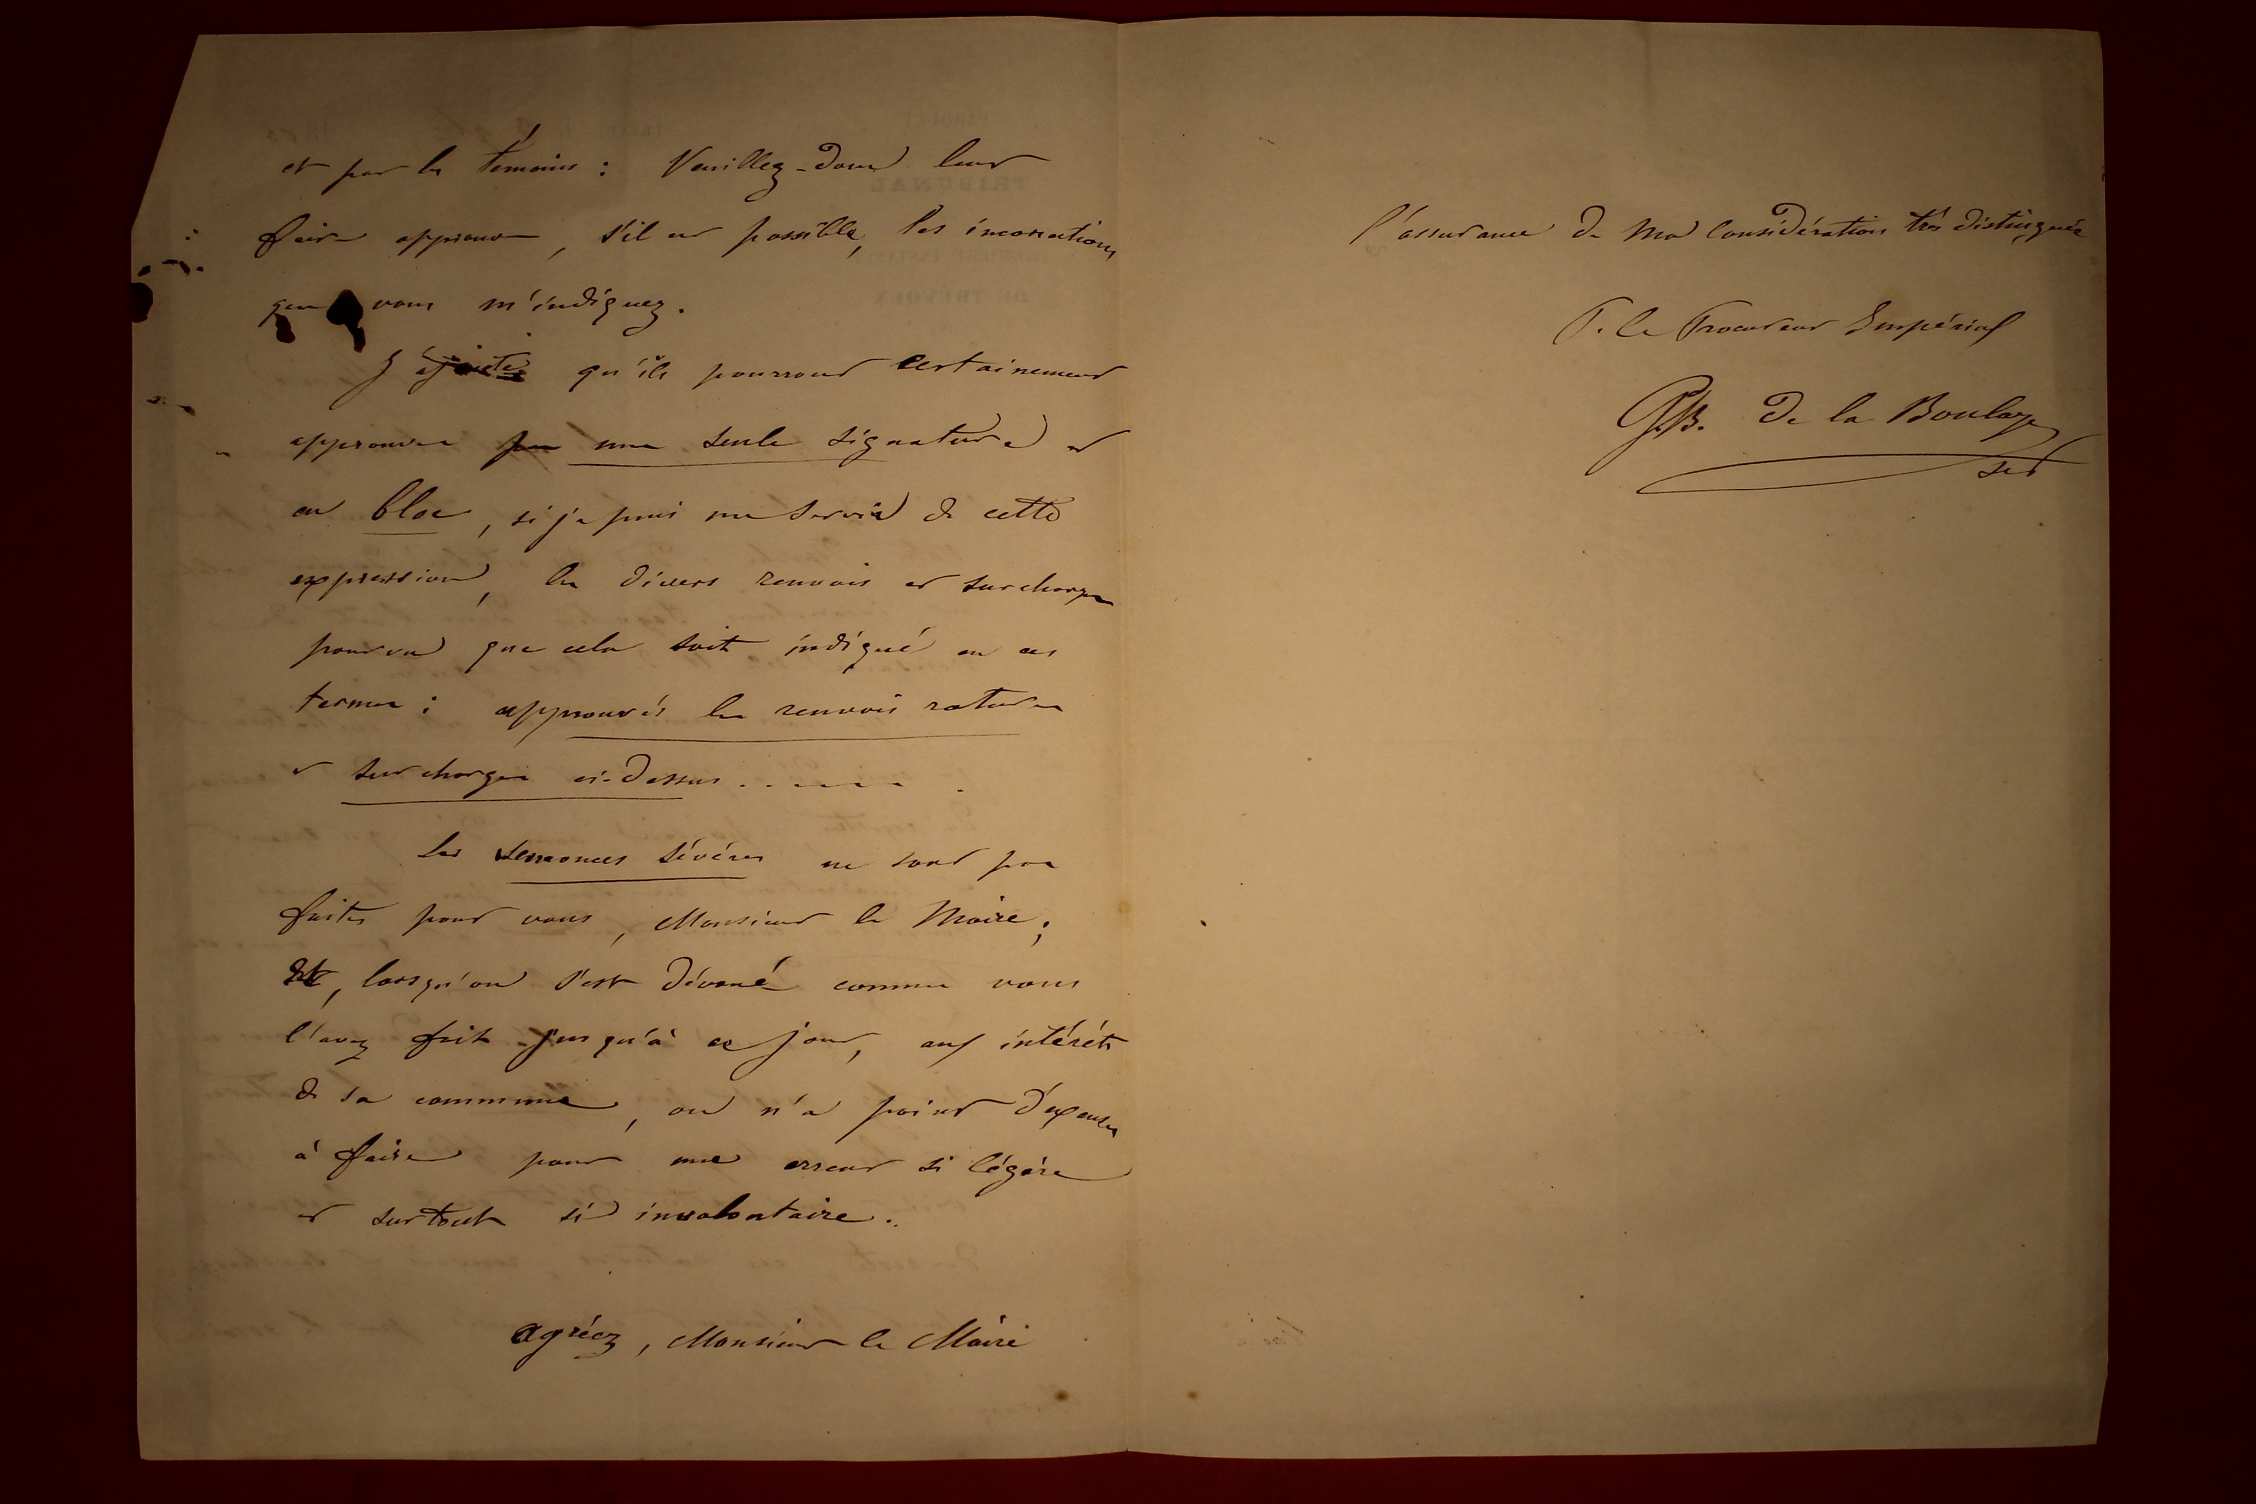 et par les témoins : Veuillez-donc leur
faire approuver, s'il est possible, les incorrections
que vous m'indiquez.
J'ajoute qu'ils pourront certainement
approuver par une seule signature et
en bloc, si je puis me servir de cette
expression, les divers renvois et surcharges
pourvu que cela soit indiqué en ces
termes : approuvés les renvois ratures
et surcharges ci-dessus . . . . . . .
Les semonces sévères ne sont pas
faites pour vous, Monsieur le Maire ;
Et, lorsqu'on s'est dévoué comme vous
l'avez fait jusqu'à ce jour, aux intérêts
de sa commune, on n'a point d'excuses
à faire pour une erreur si légère
et surtout si involontaire.
Agréez, Monsieur le Maire
l'assurance de ma considération très distinguée
P. le Procureur Impérial
G.B. de la Boulaye